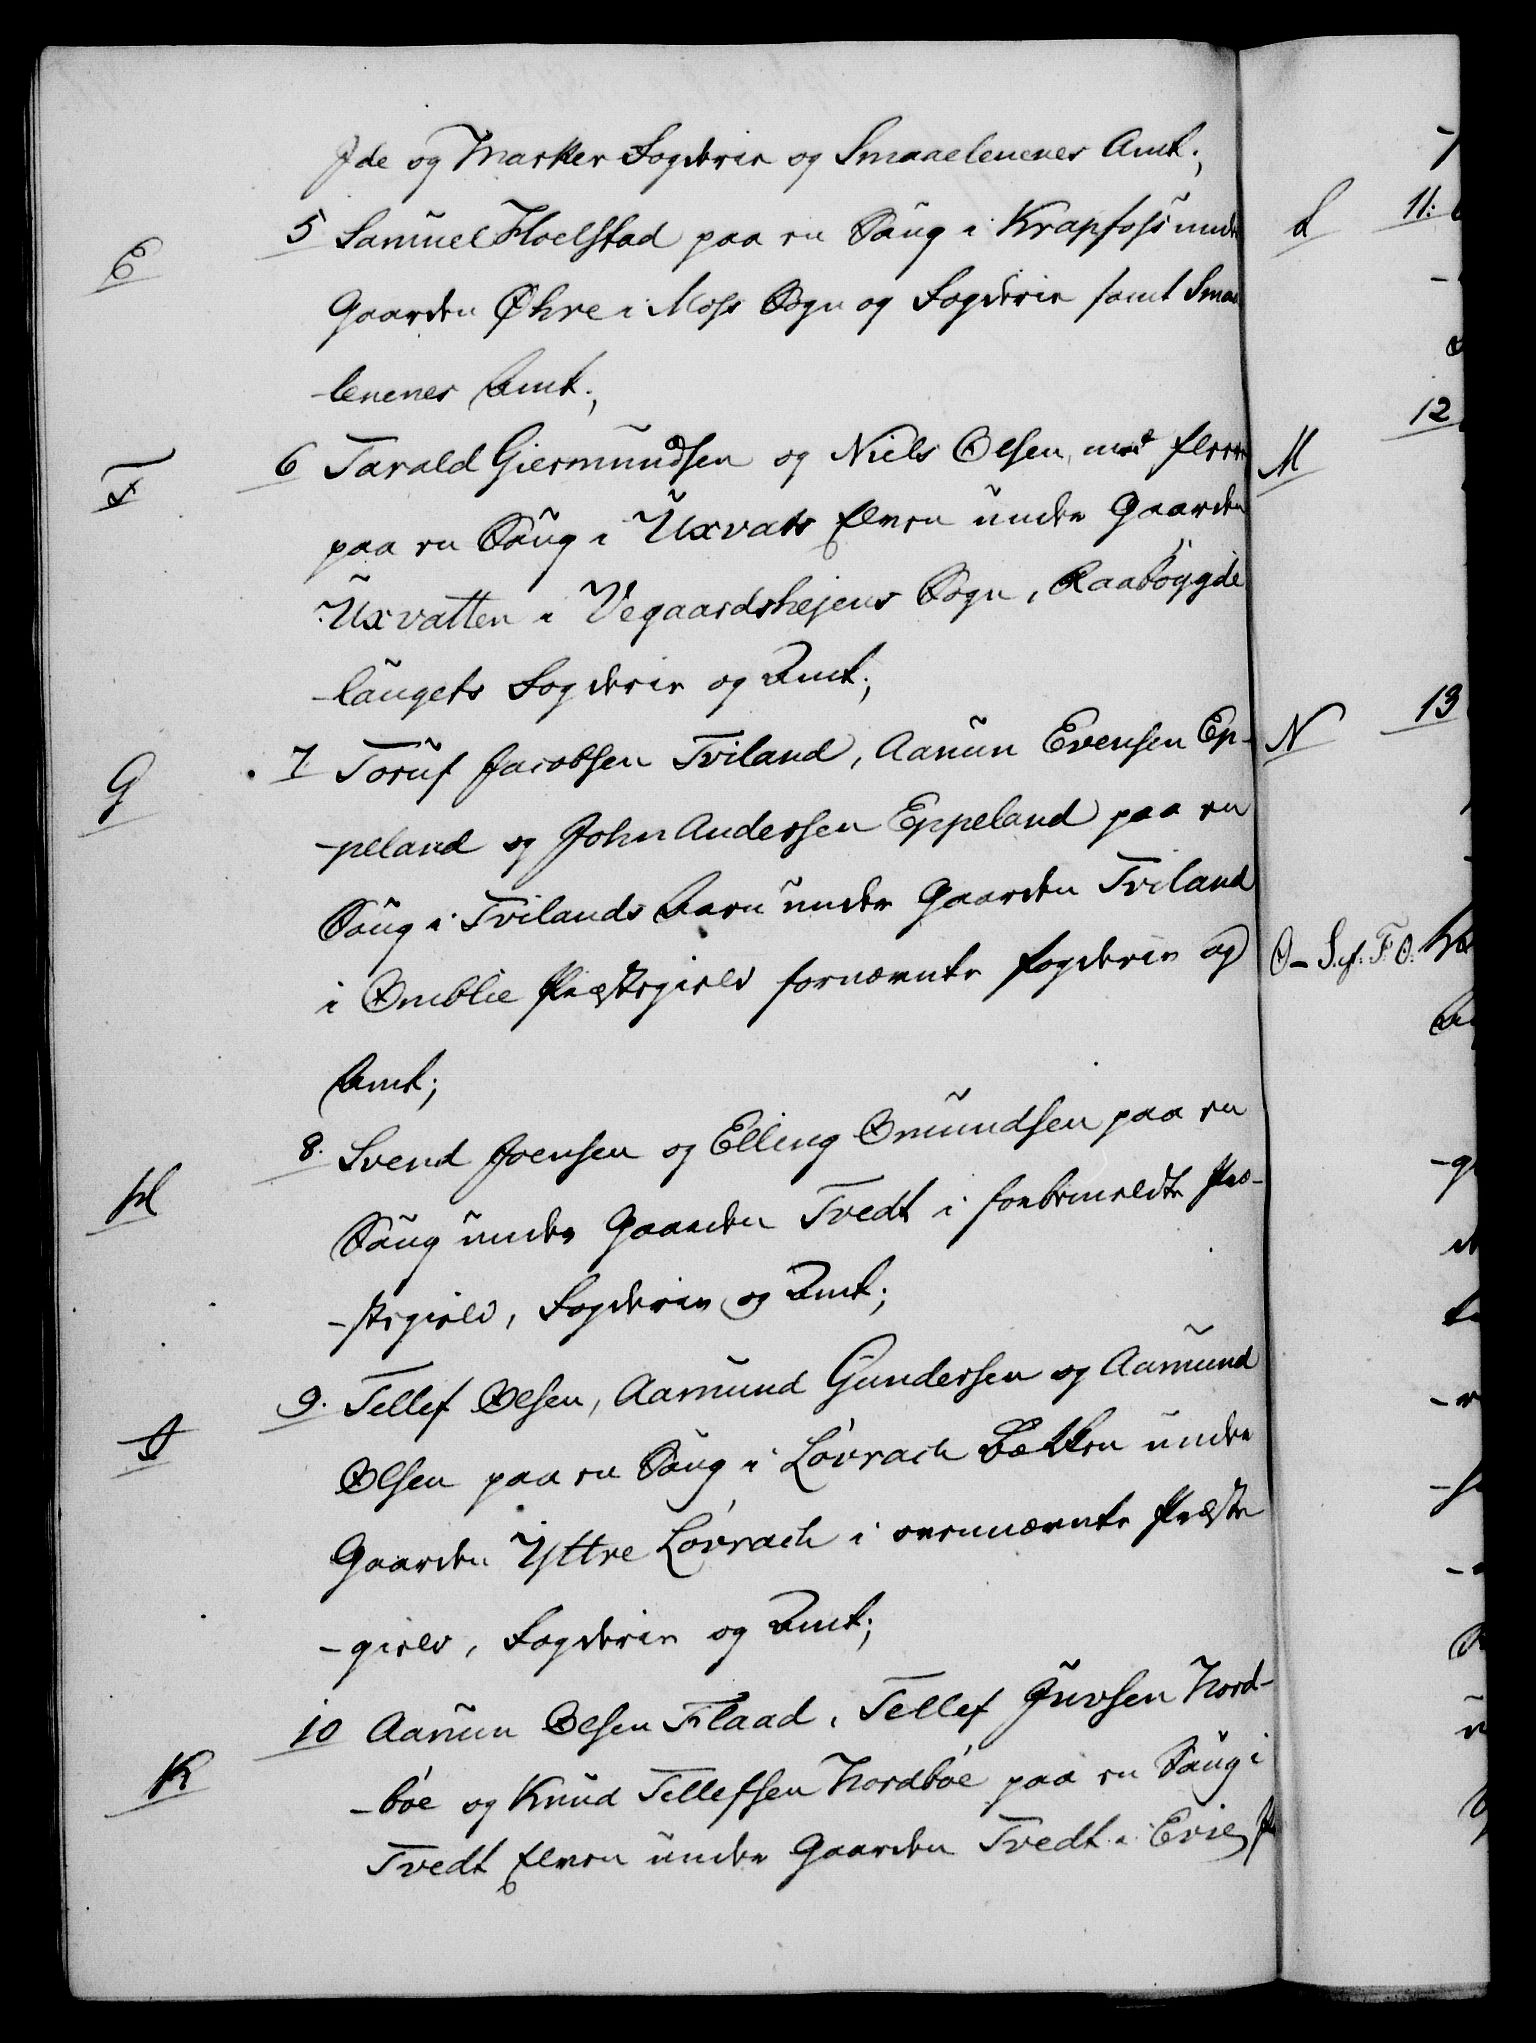 Ide og Marker Fogderie og Smaaelenenes Amt;
E
5 Samuel Hoelstad paa en Saug i Krapfoss under
Gaarden Øhre i Moss Sogn og Fogderie samt Smaa
-lenenes Amt;
F
6 Tarald Giermundsen og Niels Olsen med flere
paa en Saug i Uxvats Elven under Gaarden
Uxvatten i Vegaardshejens Sogn, Raabøygde
-laugets Fogderie og Amt;
G
7 Toruf Jacobsen Tviland, Aanun Evensen Ep-
-peland og John Andersen Eppeland paa en
Saug i Tvilands Aaen under Gaarden Tviland
i Omblie Præstegield fornævnte Fogderie og
Amt;
H
8. Svend Joensen og Elling Omundsen paa en
Saug under Gaarden Tvedt i forbemeldte Præ-
-stegield, Fogderie og Amt;
I
9. Tellef Olsen, Aamund Gundersen og Aamund
Olsen paa en Saug i Løvrach Bækken under
Gaarden Yttre Løvrach i ovennævnte Præste
-gield, Fogderie og Amt;
K
10 Aanun Olsen Flaad, Tellef Juvsen Nord-
-bøe og Knud Tellefsen Nordbøe paa en Saug i
Tvedt Elven under Gaarden Tvedt i Evie
L
11:
12
M
13
N
O